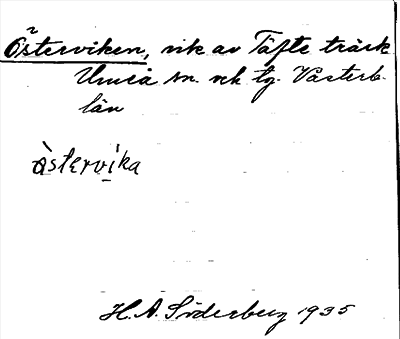 Österviken, vik av Täfte träsk
Umeå sn. och tg. Västerb.
län
àstervíka
H. A. Söderberg 1935